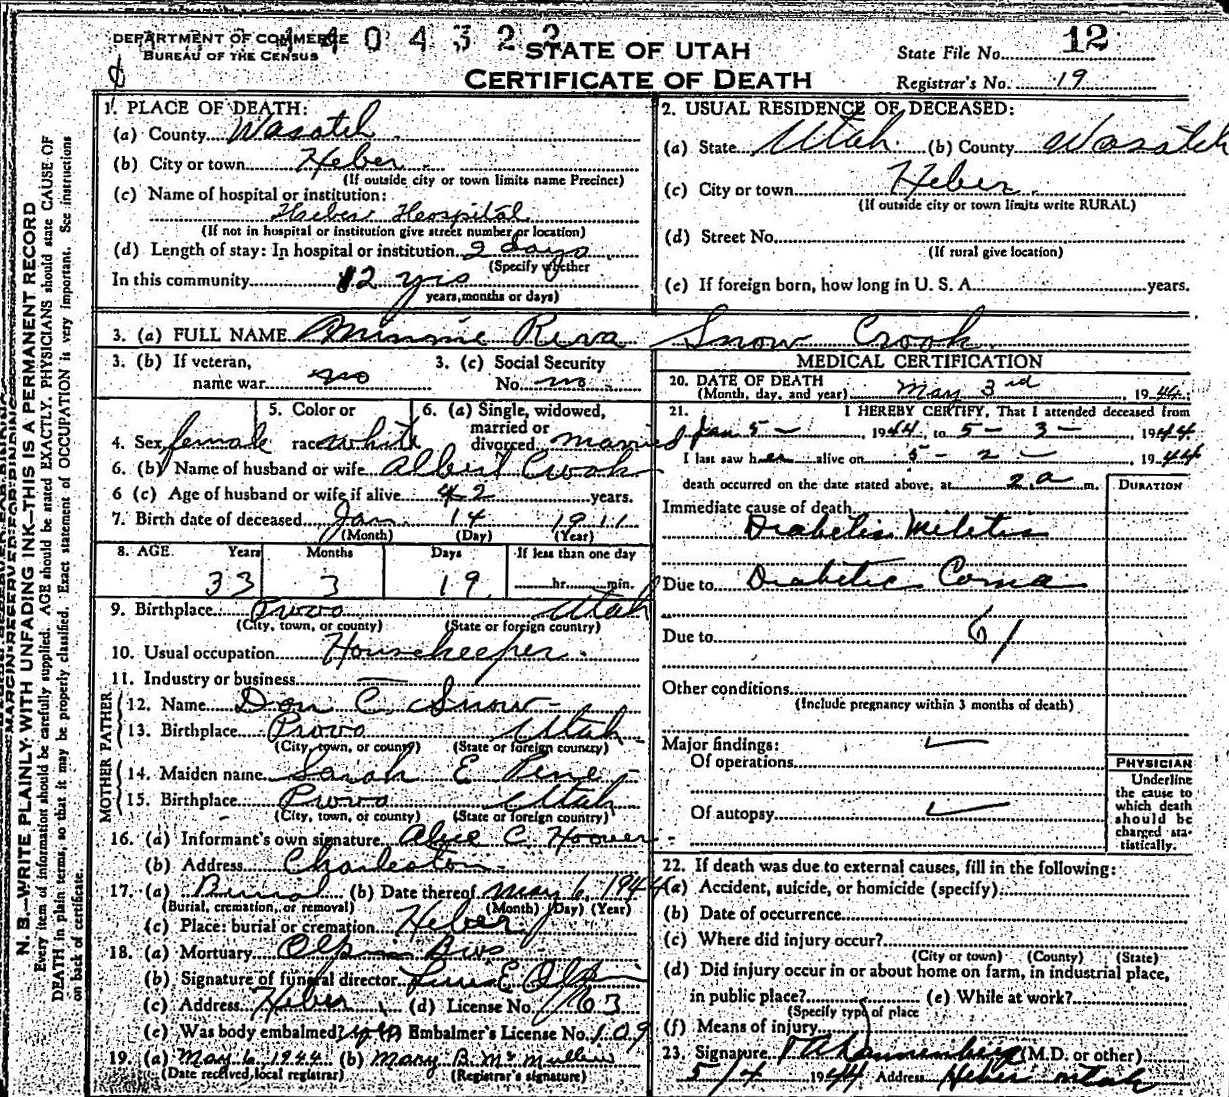 DEPARTMENT OF COMMERCE
BUREAU OF THE CENSUS
4404322
STATE OF UTAH
CERTIFICATE OF DEATH
State File No. 12
Registrar's No. 19
N. B.—WRITE PLAINLY, WITH UNFADING INK—THIS IS A PERMANENT RECORD
Every item of information should be carefully supplied. AGE should be stated EXACTLY. PHYSICIANS should state CAUSE OF
DEATH in plain terms, so that it may be properly classified. Exact statement of OCCUPATION is very important. See instructions
on back of certificate.
1. PLACE OF DEATH:
(a) County Wasatch
(b) City or town Heber
(If outside city or town limits name Precinct)
(c) Name of hospital or institution:
Heber Hospital
(If not in hospital or institution give street number or location)
(d) Length of stay: In hospital or institution 2 days
(Specify whether
In this community 12 yrs
years, months or days)
2. USUAL RESIDENCE OF DECEASED:
(a) State Utah (b) County Wasatch
(c) City or town Heber
(If outside city or town limits write RURAL)
(d) Street No.
(If rural give location)
(e) If foreign born, how long in U. S. A. years.
3. (a) FULL NAME Minnie Reva Snow Crook
3. (b) If veteran, name war no
3. (c) Social Security No. no
4. Sex female
5. Color or race white
6. (a) Single, widowed, married or divorced married
6. (b) Name of husband or wife Albert Crook
6 (c) Age of husband or wife if alive 42 years.
7. Birth date of deceased Jan 14 1911
(Month) (Day) (Year)
8. AGE Years Months Days If less than one day
33 3 19 hr. min.
9. Birthplace Provo Utah
(City, town, or county) (State or foreign country)
10. Usual occupation Housekeeper
11. Industry or business
FATHER
12. Name Don C. Snow
13. Birthplace Provo Utah
(City, town, or county) (State or foreign country)
MOTHER
14. Maiden name Sarah E
15. Birthplace Provo Utah
(City, town, or county) (State or foreign country)
16. (a) Informant's own signature C Hoover
(b) Address Charleston
17. (a) Burial (b) Date thereof May 6, 1944
(Burial, cremation, or removal) (Month) (Day) (Year)
(c) Place: burial or cremation Heber
18. (a) Mortuary Olpin Bros
(b) Signature of funeral director E Olpin
(c) Address Heber (d) License No. 163
(e) Was body embalmed? Embalmer's License No. 109
19. (a) May 6 1944 (b) Mary B. McMullin
(Date received, local registrar) (Registrar's signature)
MEDICAL CERTIFICATION
20. DATE OF DEATH
(Month, day, and year) May 3rd, 1944
21. I HEREBY CERTIFY, That I attended deceased from
Jan 5 - 1944, to 5 - 3 - 1944
I last saw her alive on 5 - 2 - 1944
death occurred on the date stated above, at 2 a m.
DURATION
Immediate cause of death
Diabetis Melitis
Due to Diabetic Coma
Due to 61
Other conditions
(Include pregnancy within 3 months of death)
Major findings:
Of operations
Of autopsy
PHYSICIAN
Underline
the cause to
which death
should be
charged sta-
tistically.
22. If death was due to external causes, fill in the following:
(a) Accident, suicide, or homicide (specify)
(b) Date of occurrence
(c) Where did injury occur?
(City or town) (County) (State)
(d) Did injury occur in or about home on farm, in industrial place,
in public place? (e) While at work?
(Specify type of place
(f) Means of injury
23. Signature (M.D. or other)
5/4 1944 Address Heber Utah